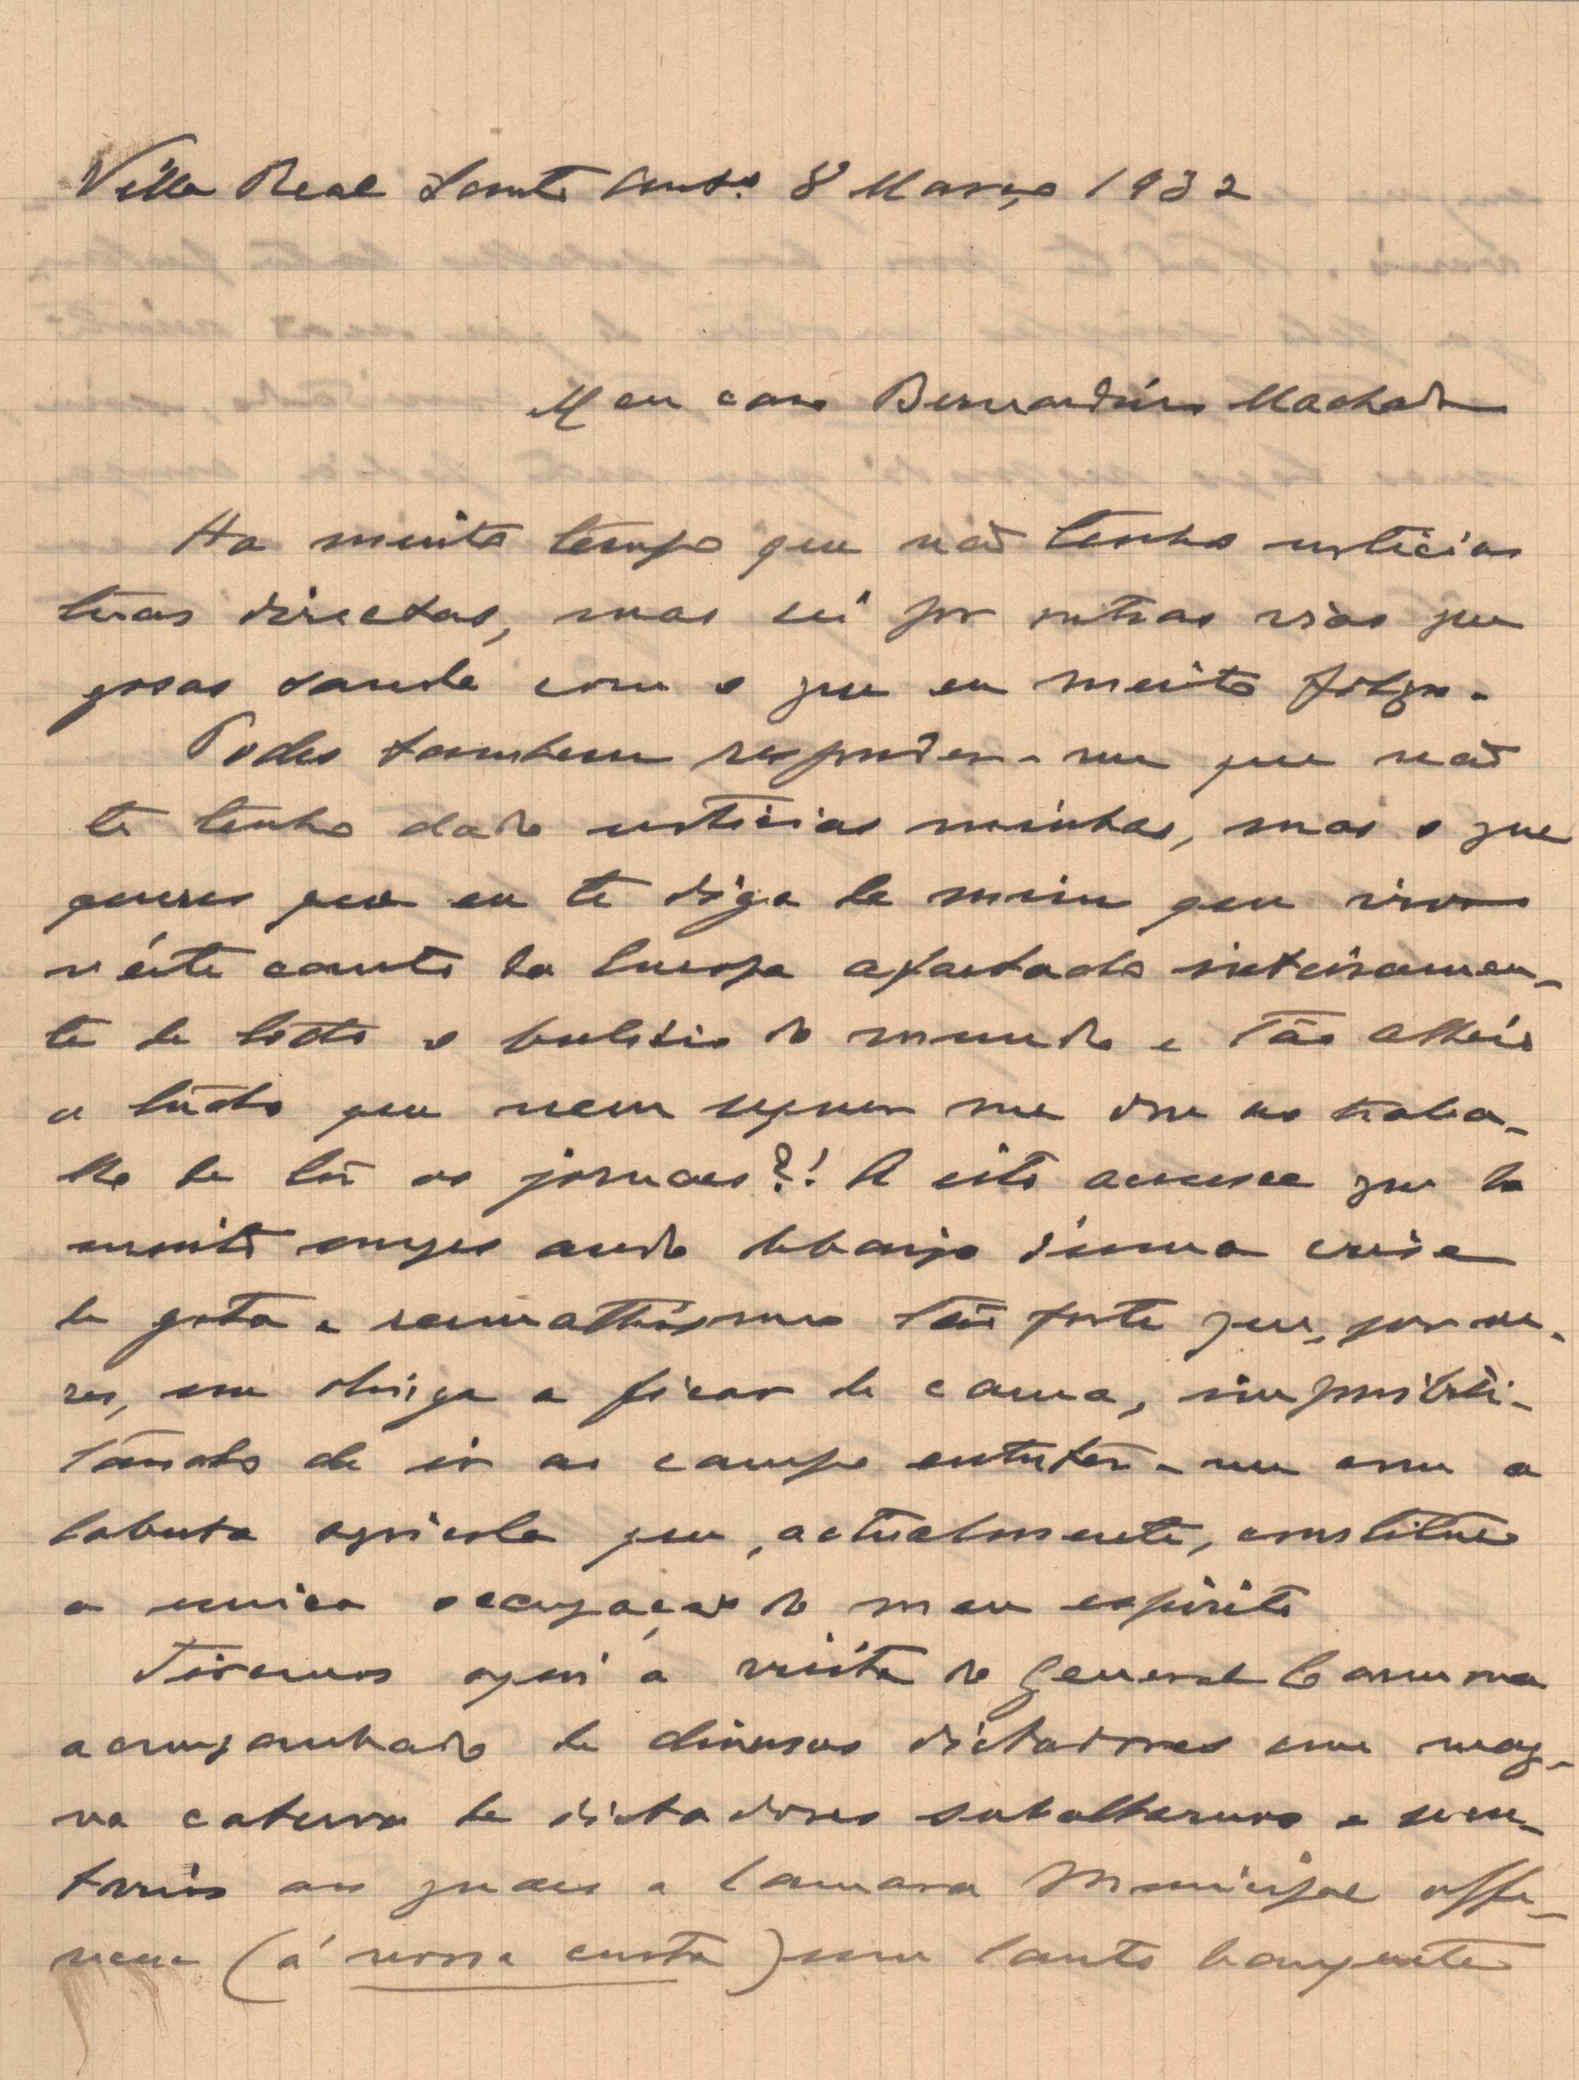 Villa Real Santo Antº 8 Março 1932
Meu caro Bernardino Machado
Ha muito tempo que não tenho noticias
tuas directas, mas sei por outras vias que
gosas saude com o que eu muito folgo.
Podes tambem responder-me que não
te tenho dado noticias minhas, mas o que
queres que eu te diga de mim que vivo
n'este canto da Europa afastado inteiramen-
te de todo o bulicio do mundo e tão alheio
a tudo que nem sequer me dou ao traba-
lho de lêr os jornaes?! A isto accresce que ha
muito tempo ando debaixo d'uma crise
de gota e reumathismo tão forte que, por ve-
zes, me obriga a ficar de cama, impossibili-
tando de ir ao campo entreter-me com a
labuta agricola que, actualmente, constitue
a unica occupação do meu espirito
Tivemos aqui a visita do General Carmona
acompanhado de diversos dictadores com mag-
na caterva de dictadores subalternos e
aos quaes a Camara Municipal offe-
receu (á nossa custa) um lauto banquete